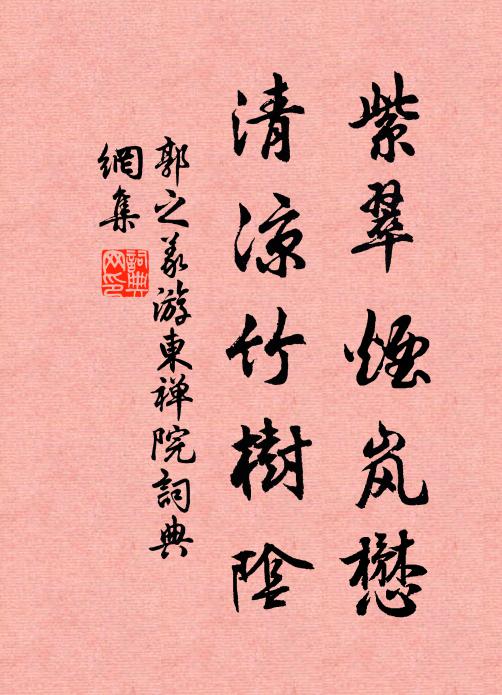 紫翠煙岚懋
清凉竹樹陰
郭之義游東禅院詞典
網集
詞典
网印